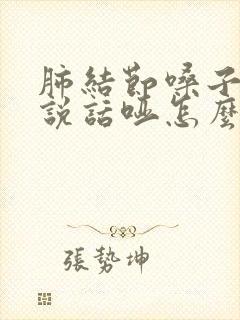 肺結節嗓子
說話啞怎麼
張勢坤